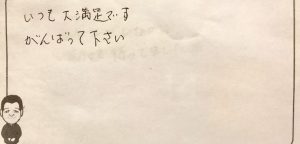 いつも大満足です
がんばって下さい